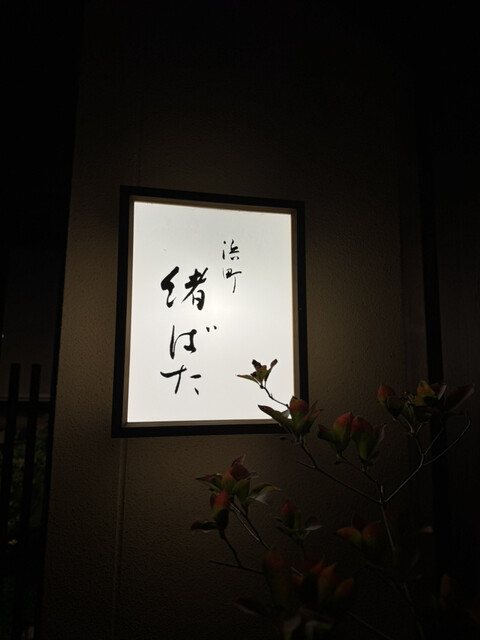 浜町
緒ばた